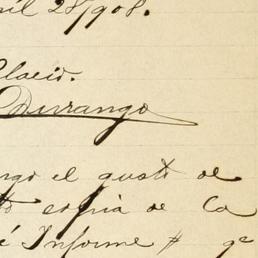 ril 28/908.
Placio.
Durango
ngo el gusto de
to copia de la
é Informe # qe